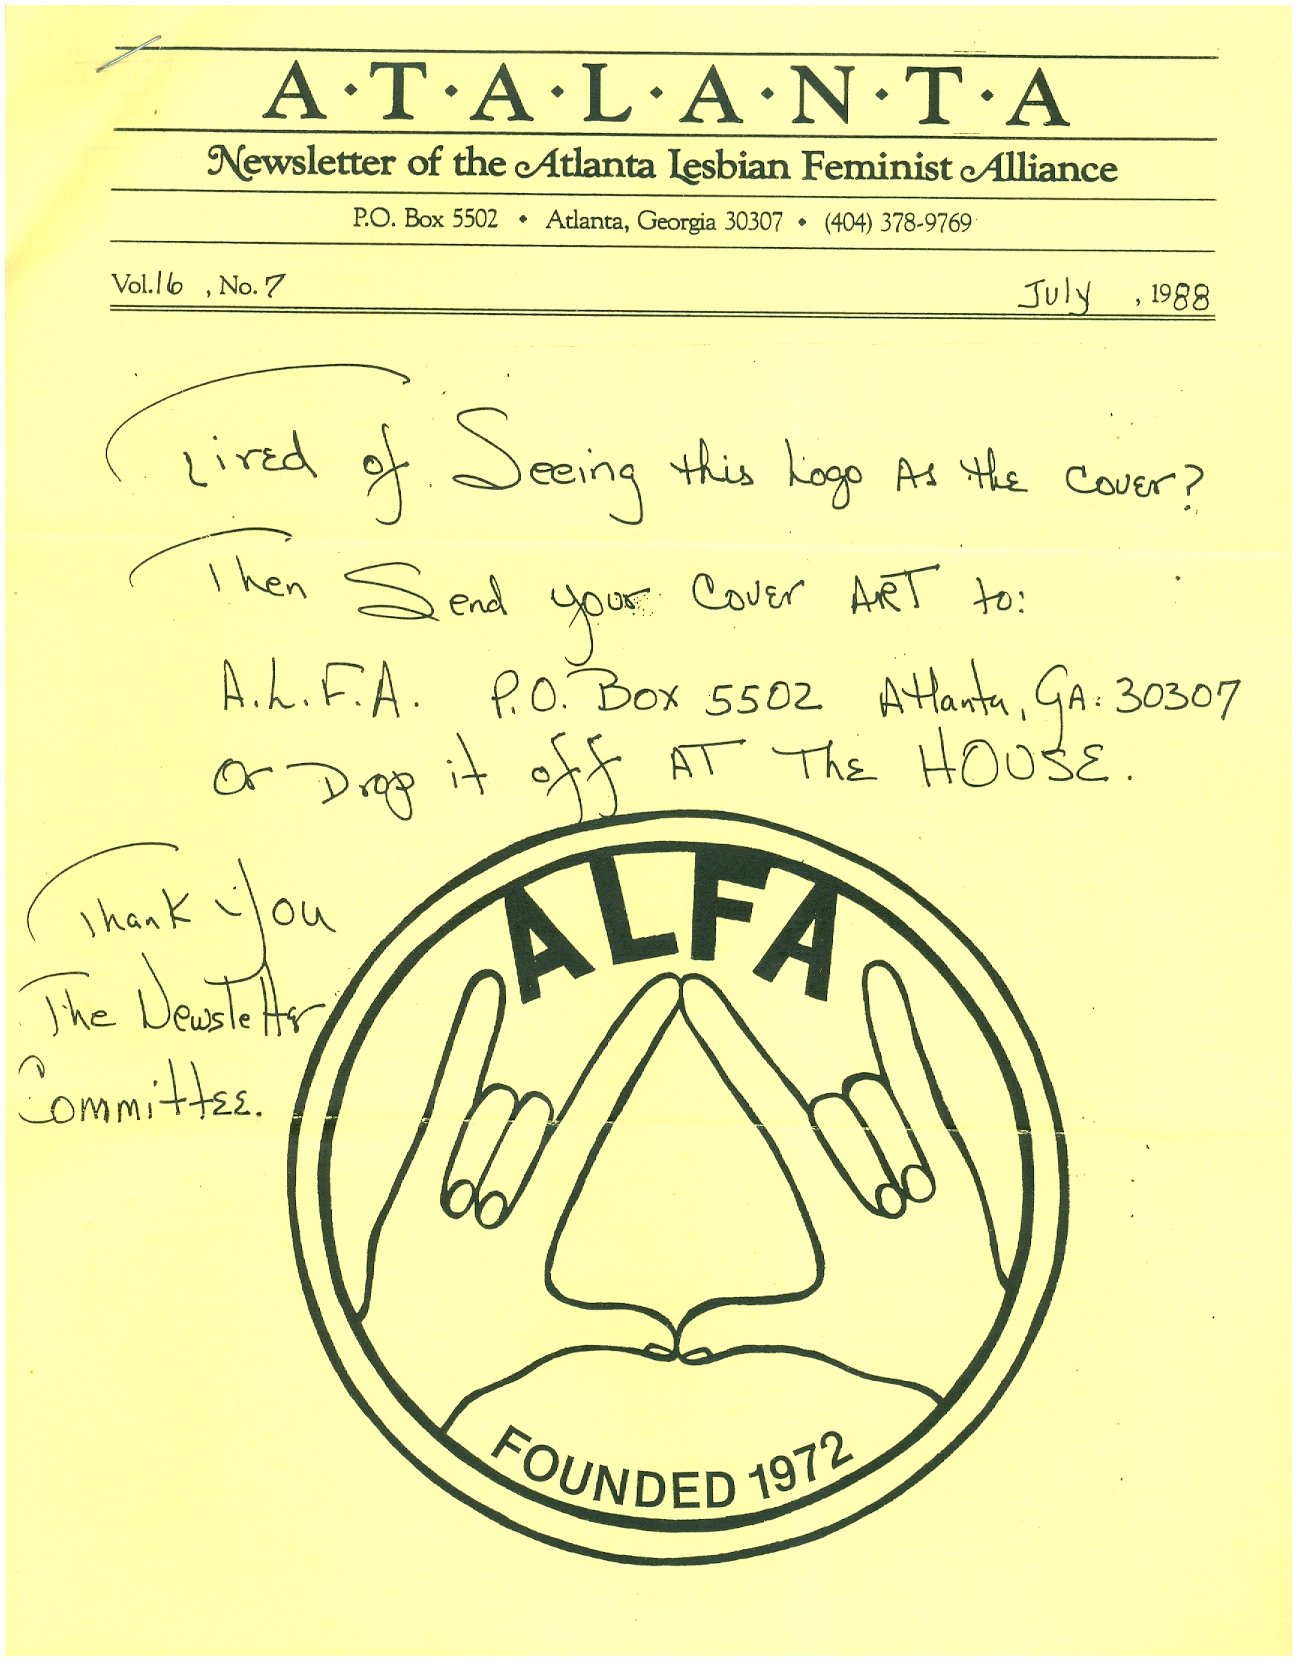 A·T·A·L·A·N·T·A
Newsletter of the Atlanta Lesbian Feminist Alliance
P.O. Box 5502 • Atlanta, Georgia 30307 • (404) 378-9769
Vol. 16 , No. 7 July , 1988
Tired of Seeing this Logo As the Cover?
Then Send your Cover ART to:
A.L.F.A. P.O. Box 5502 Atlanta, GA. 30307
Or Drop it off AT The HOUSE.
Thank You
The Newsletter
Committee.
ALFA
FOUNDED 1972